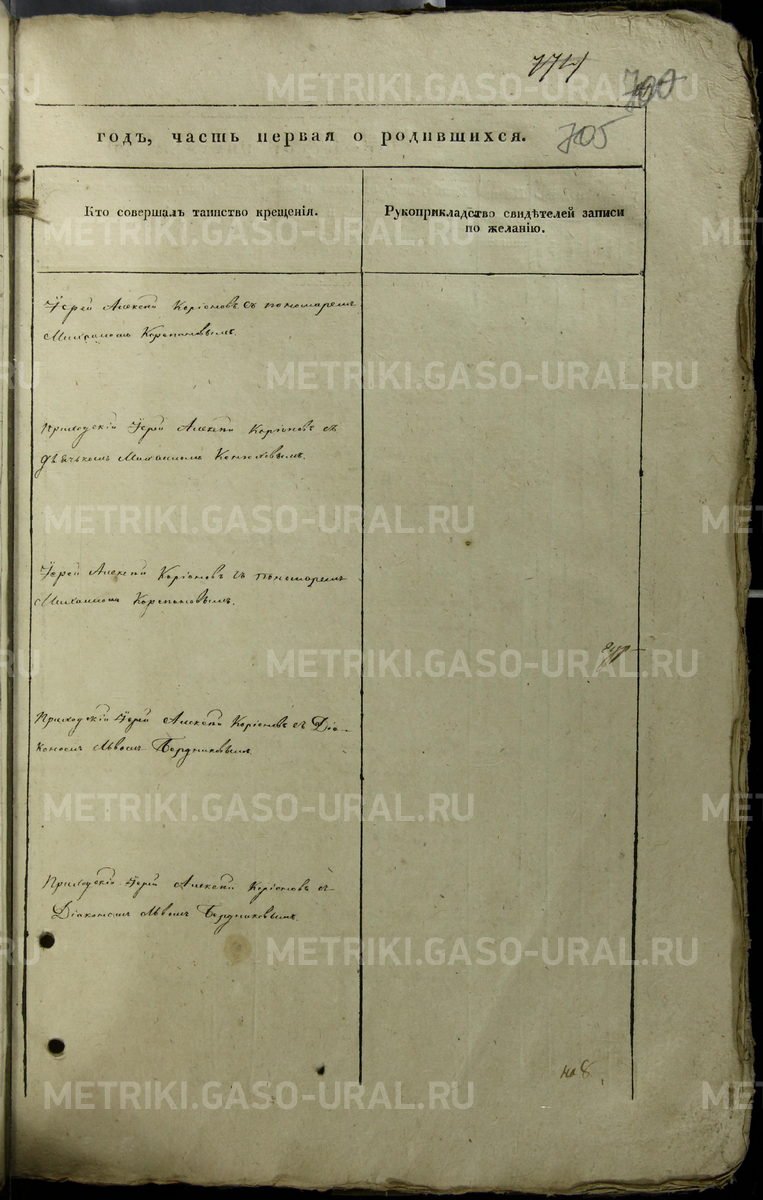 700
705
годъ, часть первая о родившихся.
Кто совершалъ таинство крещенія.
Рукоприкладство свидѣтелей записи
по желанію.
Іерей Алексій Коріоновъ съ пономаремъ
Михаиломъ Корепановымъ.
Приходскій Іерей Алексій Коріоновъ съ
дьячькомъ Михаиломъ
Іерей Алексій Коріоновъ съ пономаремъ
Михаиломъ Корепановымъ.
Приходскій Іерей Алексій Коріоновъ съ Діа-
кономъ Львомъ Бердниковымъ.
Приходскій Іерей Алексій Коріоновъ съ
Діакономъ Львомъ Бердниковымъ.
на 8.
METRIKI.GASO-URAL.RU